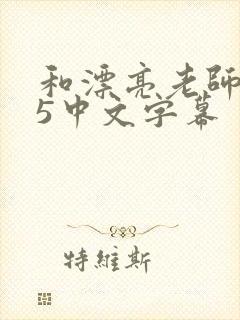 和漂亮老師
5中文字幕
特維斯